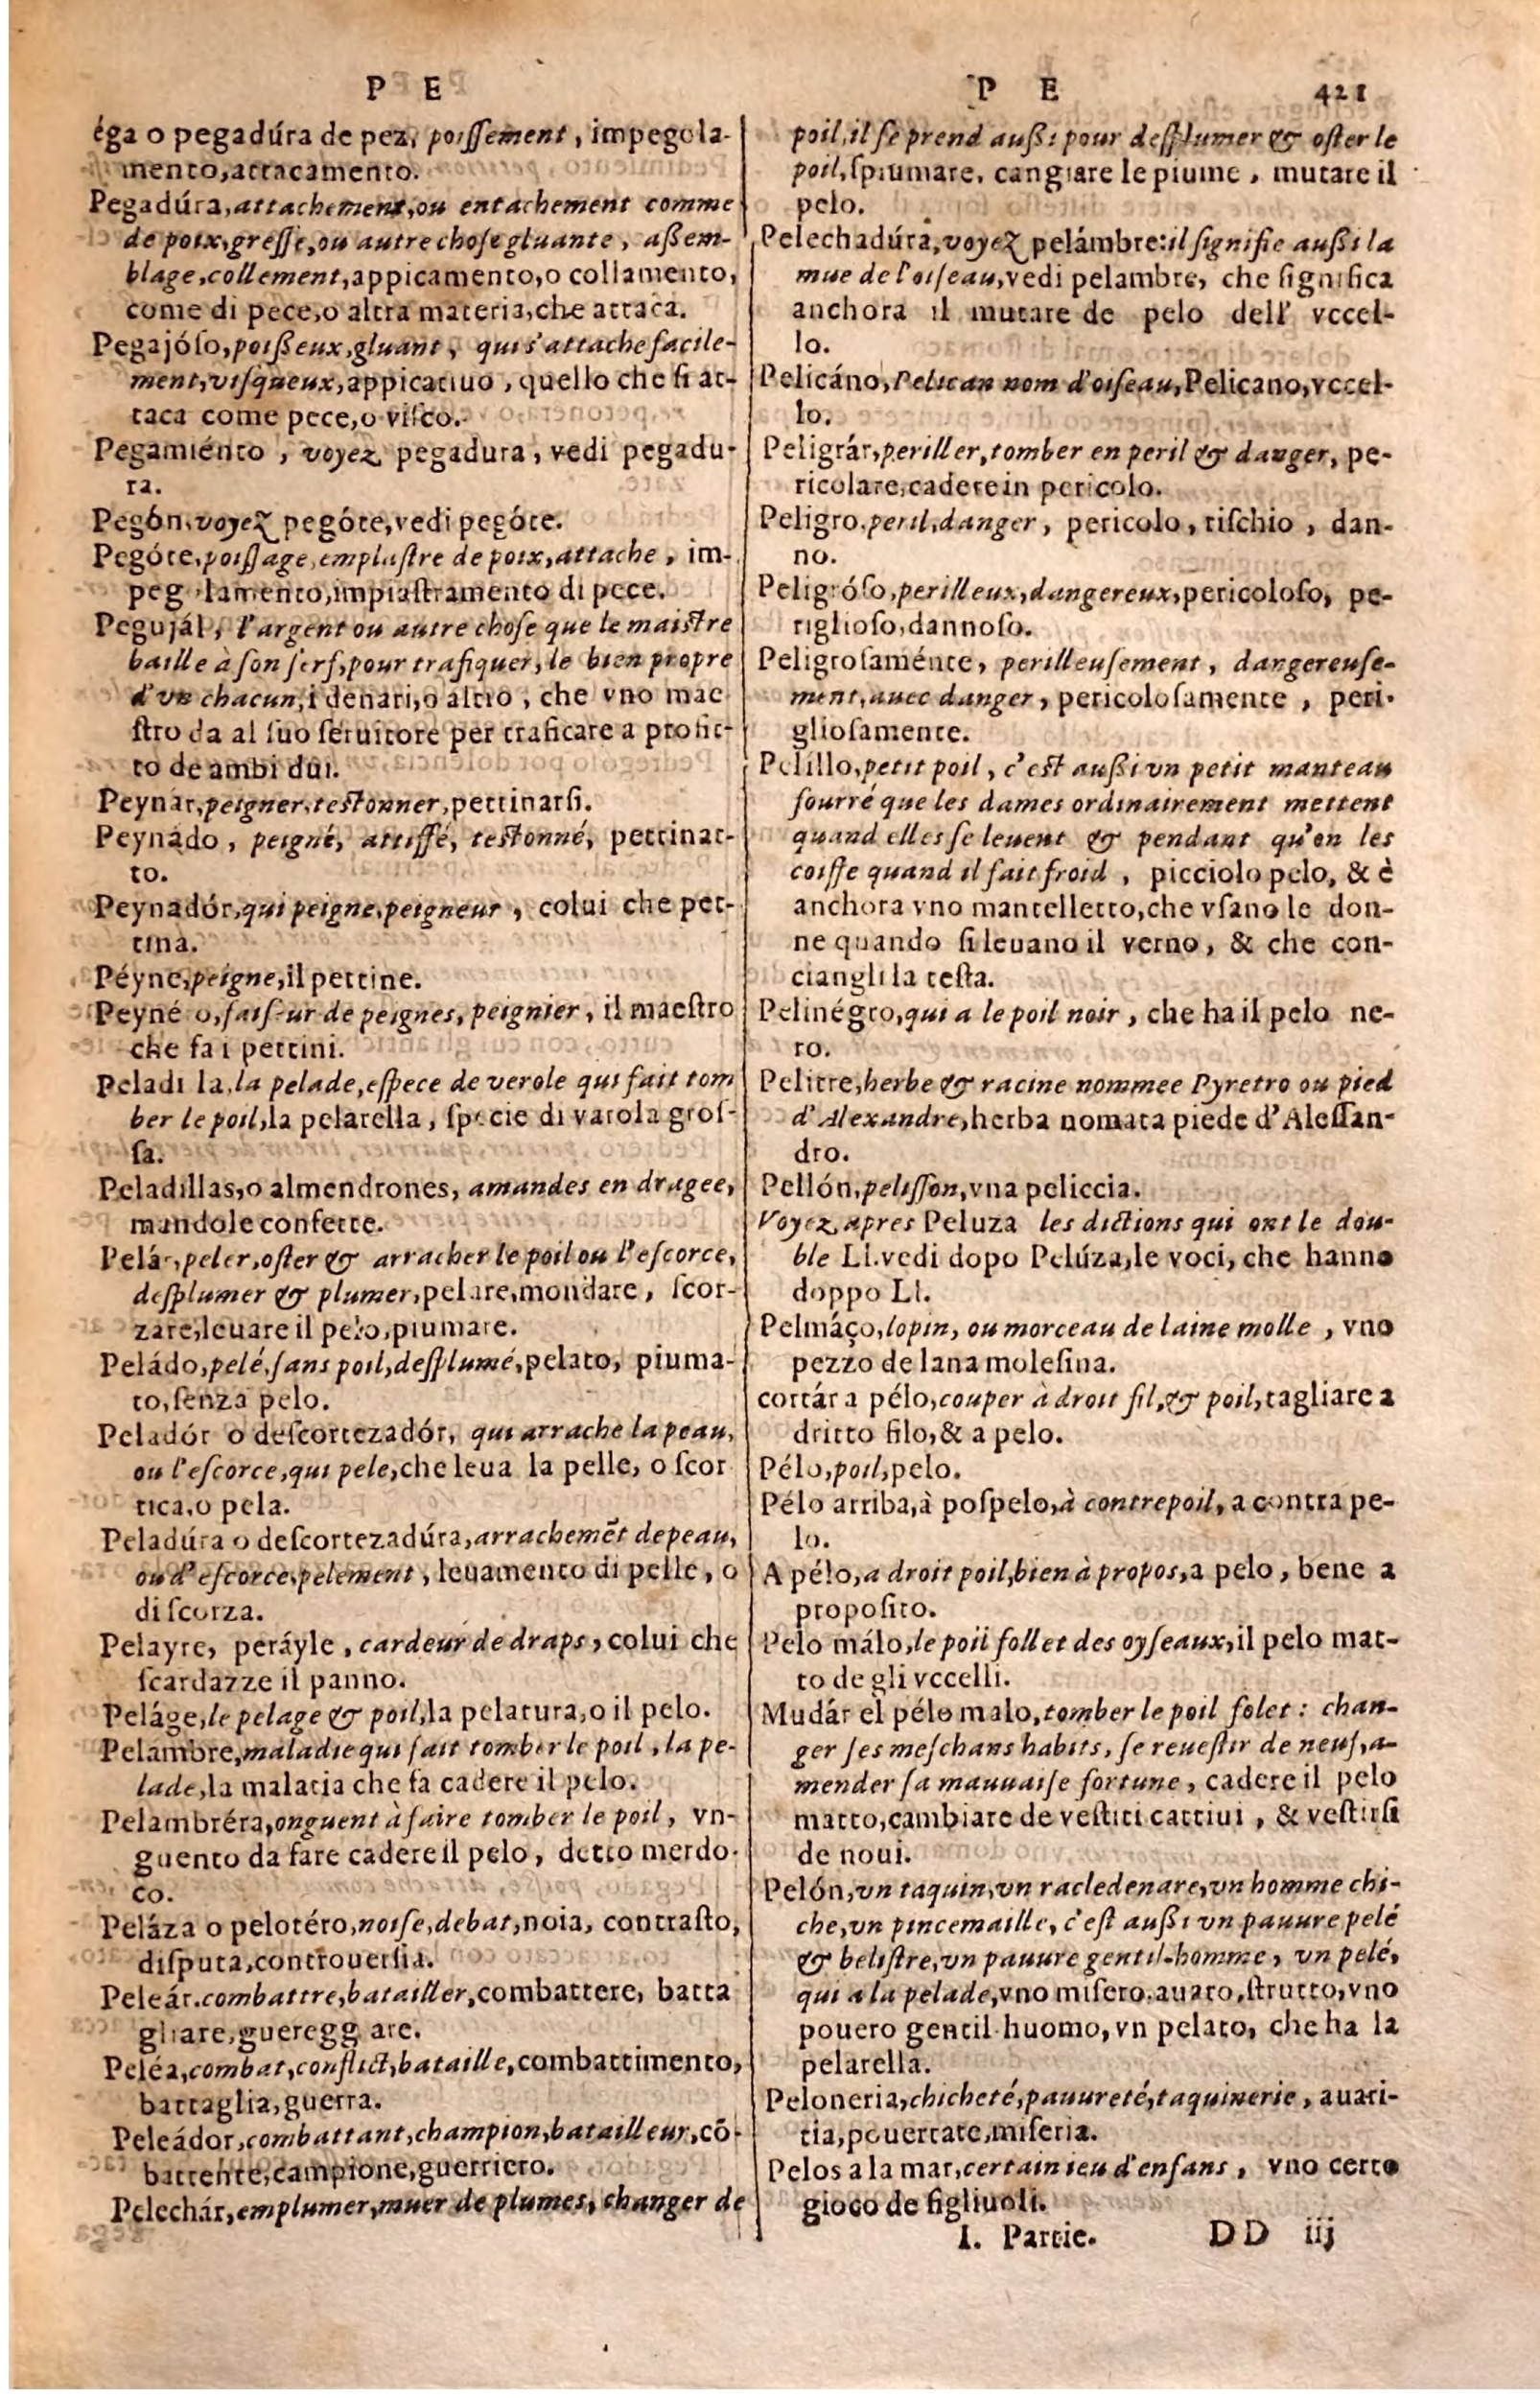 P E
éga o pegadúra de pez, poiſſement, impegola-
mento, attacamento.
Pegadúra, attachement, ou entachement comme
de poix, greſſe, ou autre choſe gluante, aßem-
blage, collement, appicamento, o collamento,
come di pece, o altra materia, che attaca.
Pegajóſo, poißeux, gluant, qui s'attache facile-
ment, viſqueux, appicatiuo, quello che ſi at-
taca come pece, o viſco.
Pegamiénto, voyez pegadura, vedi pegadu-
ra.
Pegón, voyez pegóte, vedi pegóte.
Pegóte, poiſſage, emplaſtre de poix, attache, im-
peg lamento, impiaſtramento di pece.
Pegujál, l'argent ou autre choſe que le maiſtre
baille à ſon ſerf, pour trafiquer, le bien propre
d'vn chacun, i denari, o altro, che vno mae
ſtro da al ſuo ſeruitore per traficare a profit-
to de ambi dui.
Peynar, peigner, teſtonner, pettinarſi.
Peynádo, peigné, attiffé, teſtonné, pettinat-
to.
Peynadór, qui peigne, peigneur, colui che pet-
tina.
Péyne, peigne, il pettine.
Peyné o, faiſeur de peignes, peignier, il maeſtro
che fa i pettini.
Peladi la, la pelade, eſpece de verole qui fait tom
ber le poil, la pelarella, ſpecie di varola groſ-
ſa.
Peladillas, o almendrones, amandes en dragee,
mandole confette.
Pelár, peler, oſter & arracher le poil ou l'eſcorce,
deſplumer & plumer, pelare, mondare, ſcor-
zare, leuare il pelo, piumare.
Peládo, pelé, ſans poil, deſplumé, pelato, piuma-
to, ſenza pelo.
Peladór o deſcortezadór, qui arrache la peau,
ou l'eſcorce, qui pele, che leua la pelle, o ſcor
tica, o pela.
Peladúra o deſcortezadúra, arrachemẽt de peau,
ou d'eſcorce, pelement, leuamento di pelle, o
di ſcorza.
Pelayre, peráyle, cardeur de draps, colui che
ſcardazze il panno.
Peláge, le pelage & poil, la pelatura, o il pelo.
Pelambre, maladie qui fait tomber le poil, la pe-
lade, la malatia che fa cadere il pelo.
Pelambréra, onguent à faire tomber le poil, vn-
guento da fare cadere il pelo, detto merdo-
co.
Peláza o pelotéro, noiſe, debat, noia, contraſto,
diſputa, controuerſia.
Peleár, combattre, batailler, combattere, batta
gliare, gueregg are.
Peléa, combat, conflict, bataille, combattimento,
battaglia, guerra.
Peleádor, combattant, champion, batailleur, cõ-
battente, campione, guerriero.
Pelechár, emplumer, muer de plumes, changer de
P E 421
poil, il ſe prend außi pour deſplumer & oſter le
poil, ſpiumare, cangiare le piume, mutare il
pelo.
Pelechadúra, voyez pelámbre: il ſignifie außi la
mue de l'oiſeau, vedi pelambre, che ſignifica
anchora il mutare de pelo dell' vccel-
lo.
Pelicáno, Pelican nom d'oiſeau, Pelicano, vccel-
lo.
Peligrár, periller, tomber en peril & danger, pe-
ricolare, cadere in pericolo.
Peligro, peril, danger, pericolo, riſchio, dan-
no.
Peligróſo, perilleux, dangereux, pericoloſo, pe-
riglioſo, dannoſo.
Peligroſaménte, perilleuſement, dangereuſe-
ment, auec danger, pericoloſamente, peri-
glioſamente.
Pelíllo, petit poil, c'eſt außi vn petit manteau
fourré que les dames ordinairement mettent
quand elles ſe leuent & pendant qu'on les
coiffe quand il fait froid, picciolo pelo, & è
anchora vno mantelletto, che vſano le don-
ne quando ſi leuano il verno, & che con-
ciangli la teſta.
Pelinégro, qui a le poil noir, che ha il pelo ne-
ro.
Pelitre, herbe & racine nommee Pyretro ou pied
d'Alexandre, herba nomata piede d'Aleſſan-
dro.
Pellón, peliſſon, vna peliccia.
Voyez apres Peluza les dictions qui ont le dou-
ble Ll. vedi dopo Pelúza, le voci, che hanno
doppo Ll.
Pelmáço, lopin, ou morceau de laine molle, vno
pezzo de lana moleſina.
cortár a pélo, couper à droit fil, & poil, tagliare a
dritto filo, & a pelo.
Pélo, poil, pelo.
Pélo arriba, à poſpelo, à contrepoil, a contra pe-
lo.
A pélo, a droit poil, bien à propos, a pelo, bene a
propoſito.
Pelo málo, le poil follet des oyſeaux, il pelo mat-
to de gli vccelli.
Mudár el pélo malo, tomber le poil folet: chan-
ger ſes meſchans habits, ſe reueſtir de neuf, a-
mender ſa mauuaiſe fortune, cadere il pelo
matto, cambiare de veſtiti cattiui, & veſtirſi
de noui.
Pelón, vn taquin, vn racledenare, vn homme chi-
che, vn pincemaille, c'eſt außi vn pauure pelé
& beliſtre, vn pauure gentil-homme, vn pelé,
qui a la pelade, vno miſero, auaro, ſtrutto, vno
pouero gentil huomo, vn pelato, che ha la
pelarella.
Peloneria, chicheté, pauureté, taquinerie, auari-
tia, pouertate, miſeria.
Pelos a la mar, certain ieu d'enfans, vno certo
gioco de figliuoli.
I. Partie. DD iij